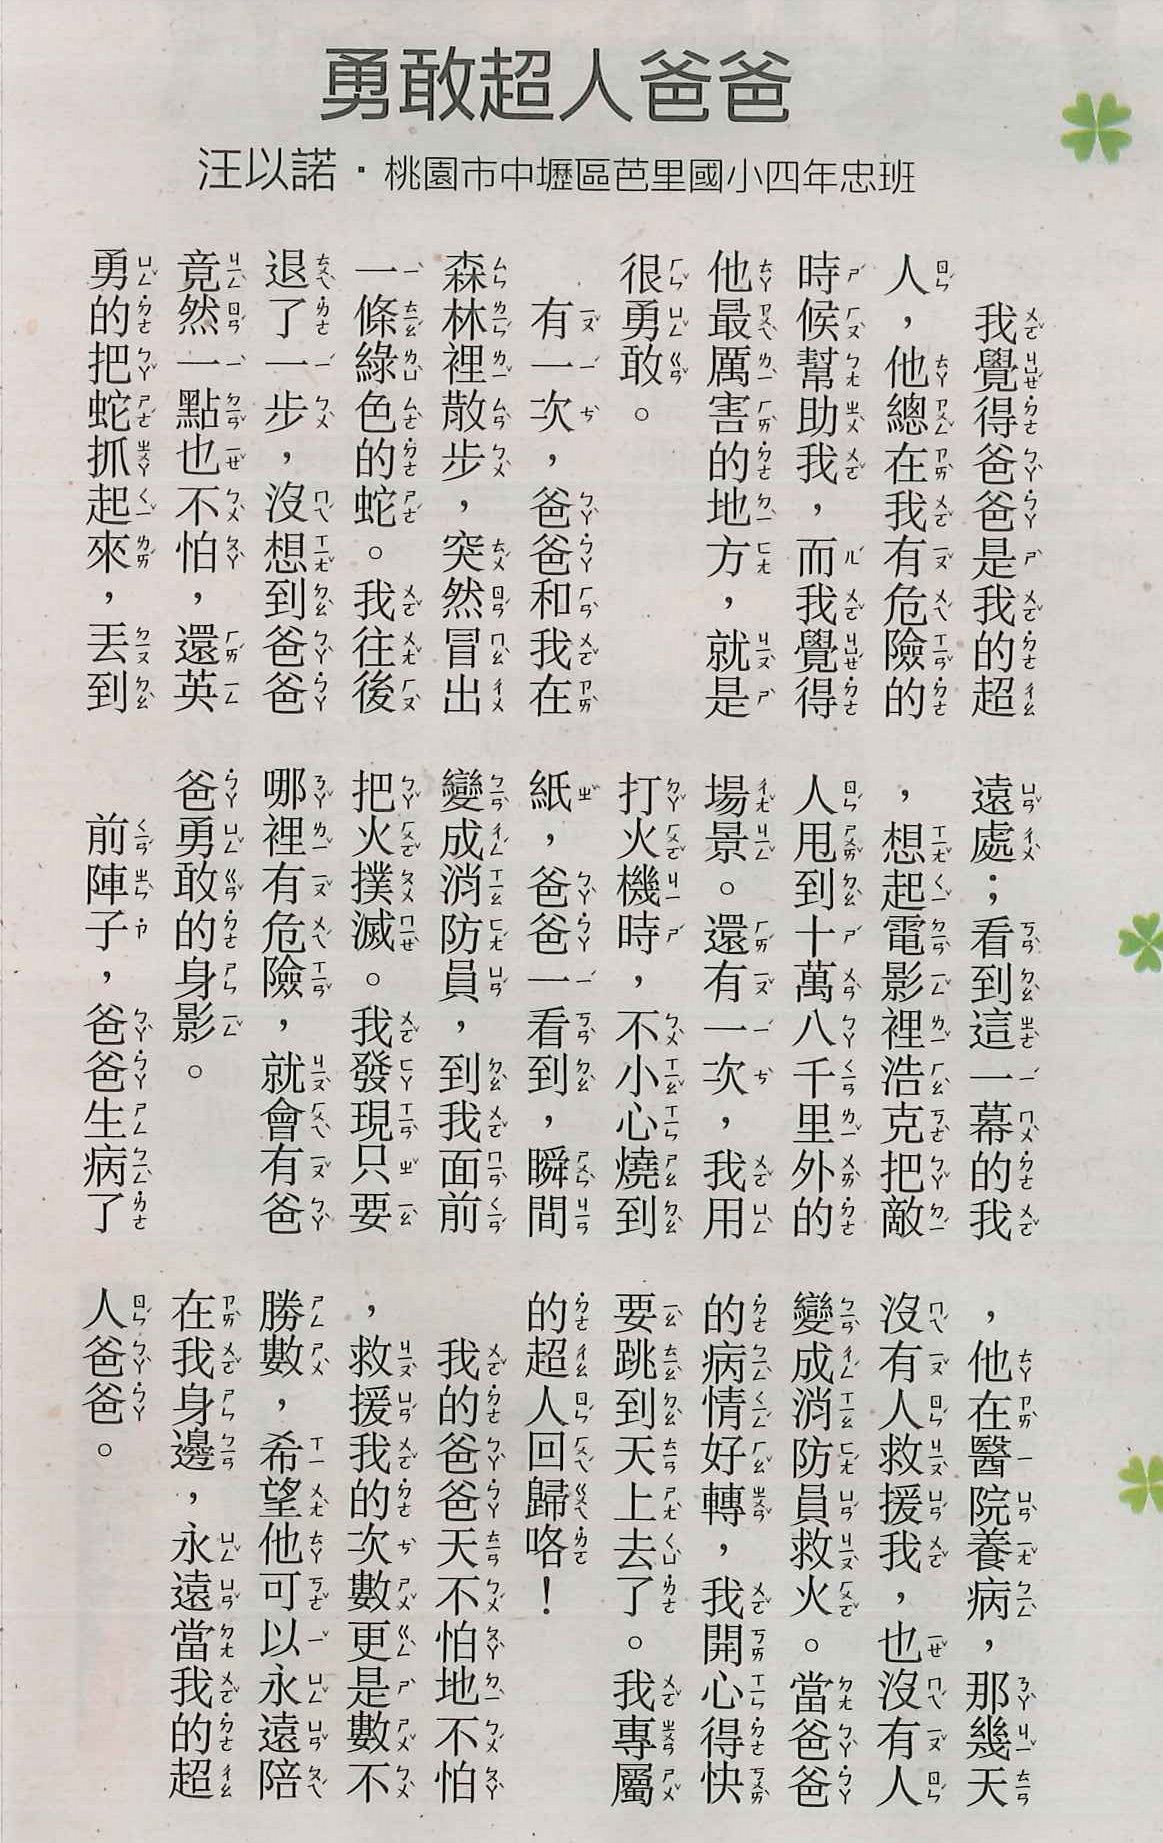 勇敢超人爸爸
汪以諾·桃園市中壢區芭里國小四年忠班
我覺得爸爸是我的超
人，他總在我有危險的
時候幫助我，而我覺得
他最厲害的地方，就是
很勇敢。
有一次，爸爸和我在
森林裡散步，突然冒出
一條綠色的蛇。我往後
退了一步，沒想到爸爸
竟然一點也不怕，還英
勇的把蛇抓起來，丟到
遠處；看到這一幕的我
，想起電影裡浩克把敵
人甩到十萬八千里外的
場景。還有一次，我用
打火機時，不小心燒到
紙，爸爸一看到，瞬間
變成消防員，到我面前
把火撲滅。我發現只要
哪裡有危險，就會有爸
爸勇敢的身影。
前陣子，爸爸生病了
，他在醫院養病，那幾天
沒有人救援我，也沒有人
變成消防員救火。當爸爸
的病情好轉，我開心得快
要跳到天上去了。我專屬
的超人回歸咯！
我的爸爸天不怕地不怕
，救援我的次數更是數不
勝數，希望他可以永遠陪
在我身邊，永遠當我的超
人爸爸。